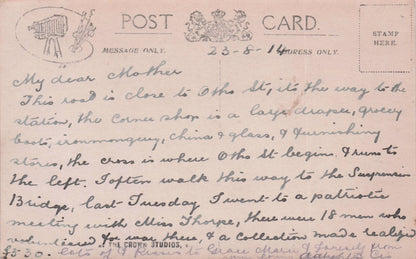 POST CARD.
MESSAGE ONLY.
ADDRESS ONLY.
STAMP
HERE.
23-8-14
My dear Mother
This road is close to Otho St, its the way to the
station, the corner shop is a large draper, grocery
boots, ironmongery, china & glass, & furnishing
stores, the cross is where Otho St begins & runs to
the left. I often walk this way to the Suspension
Bridge, last Tuesday I went to a patriotic
meeting with Miss Thorpe, there were 18 men who
volunteered for war there, & a collection made realised
£3-30. Lots of Kisses to Grace Marie & from
THE CROWN STUDIOS.